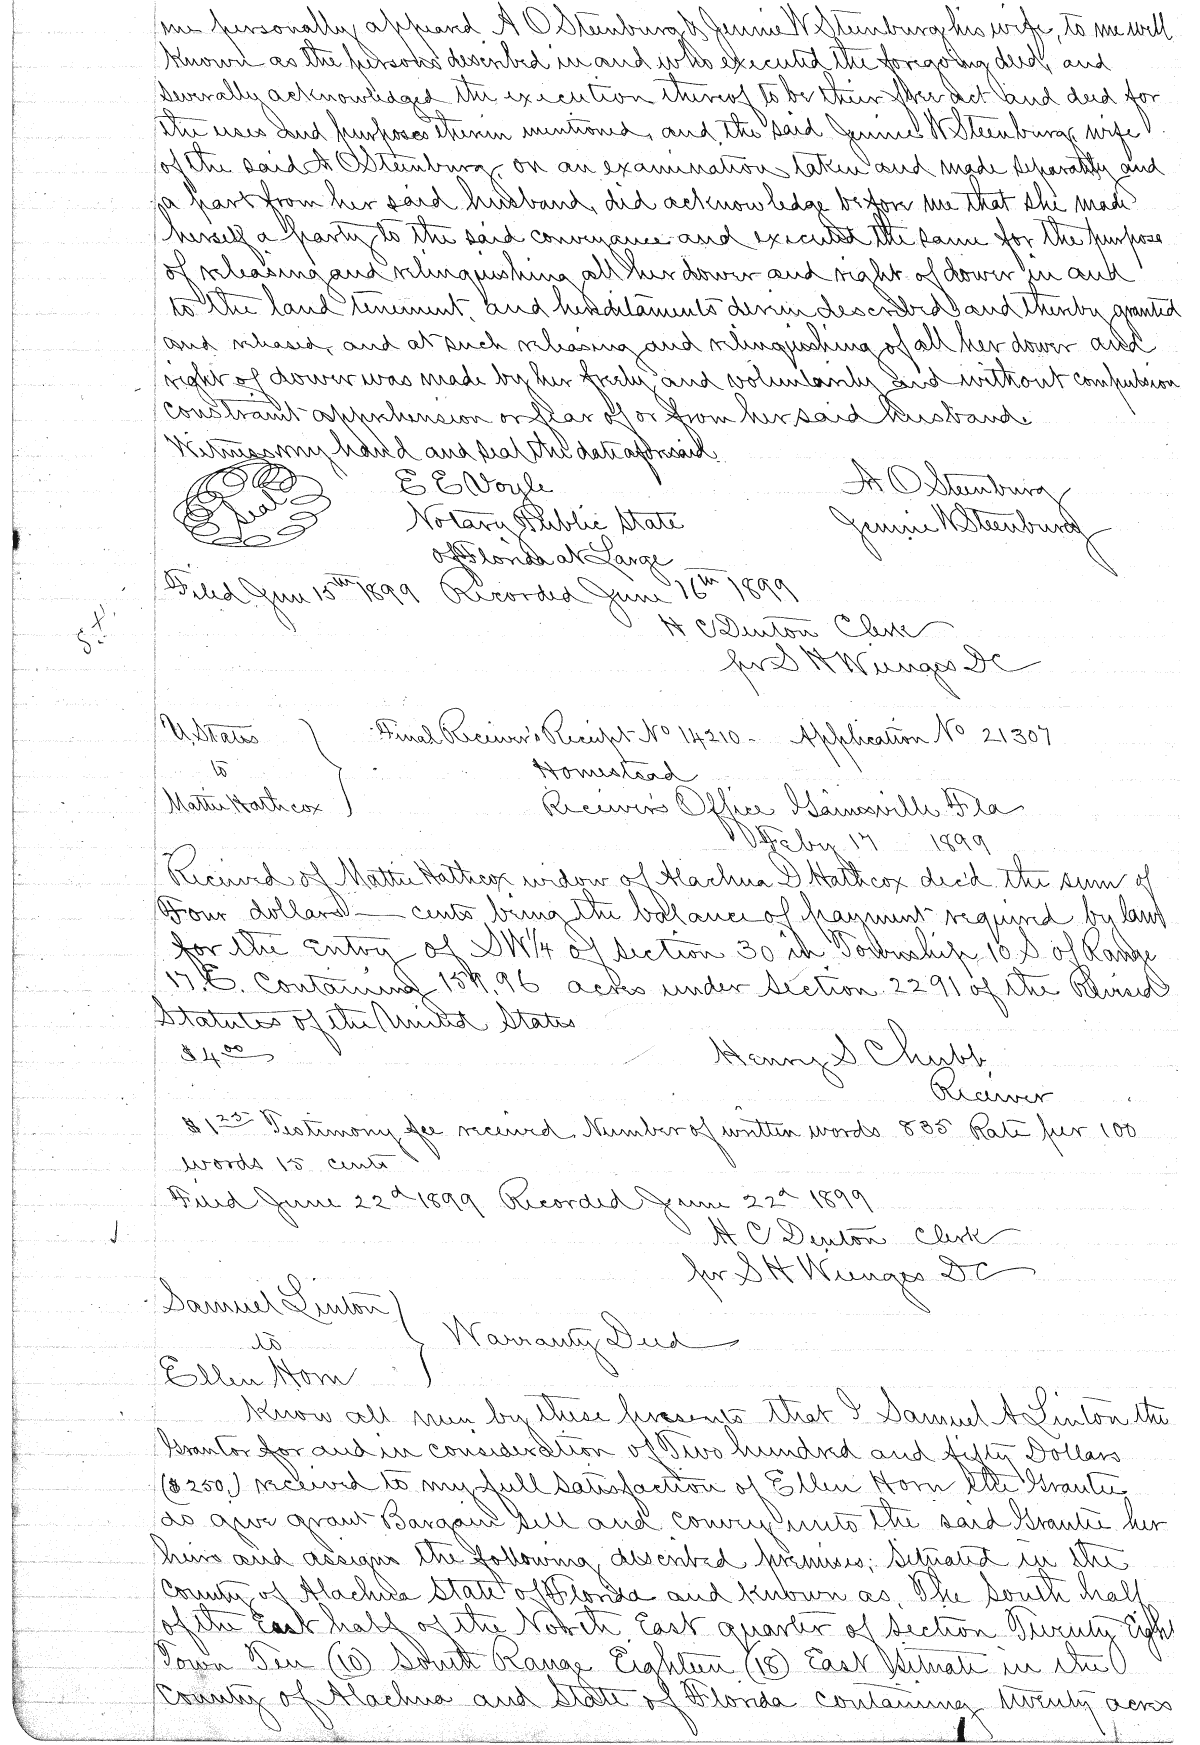 me personally appeard A O Steenburg & Jennie W Steenburg his wife, to me well
known as the persons described in and who executed the foregoing deed, and
severally acknowledged the execution thereof to be their free act and deed for
the uses and purposes therein mentioned, and the said Jennie W Steenburg wife
of the said A O Steenburg, on an examination taken and made separately and
a part from her said husband, did acknowledge before me that she made
herself a party to the said conveyance and executed the same for the purpose
of releasing and relinquishing all her dower and right of dower in and
to the land tenement, and hereditaments therein described and thereby granted
and released, and at such releasing and relinquishing of all her dower and
right of dower was made by her freely and voluntarily and without compulsion
constraint apprehension or fear of or from her said husband.
Witness my hand and seal the date aforesaid.
Seal E E Voyle A O Steenburg
Notary Public State Jennie W Steenburg
of Florida at Large
Filed June 15th 1899 Recorded June 16th 1899
H C Denton Clerk
per S H Wienges DC
U. States Final Receiver's Receipt No 14210 - Application No 21307
to Homestead
Mattie Hathcox Receiver's Office Gainesville Fla
Feby 17 1899
Received of Mattie Hathcox widow of Alachua D Hathcox dec'd the sum of
Four dollars — cents being the balance of payment required by law
for the entry of SW1/4 of Section 30 in Township 10 S of Range
17 E. Containing 159.96 acres under Section 2291 of the Revised
Statutes of the United States
$4.00 Henry S Chubb,
Receiver
$1.25 Testimony fee received. Number of written words 835 Rate per 100
words 15 cents
Filed June 22d 1899 Recorded June 22d 1899
H C Denton Clerk
per S H Wienges DC
Samuel Linton
to Warranty Deed
Ellen Horn
Know all men by these presents that I Samuel A Linton the
Grantor for and in consideration of Two hundred and fifty Dollars
($250.) received to my full satisfaction of Ellen Horn the Grantee
do give grant Bargain Sell and convey unto the said Grantee her
heirs and assigns the following described premises; Situated in the
County of Alachua State of Florida and known as, The South half
of the East half of the North East quarter of Section Twenty Eight
Town Ten (10) South Range Eighteen (18) East Situate in the
County of Alachua and State of Florida containing twenty acres